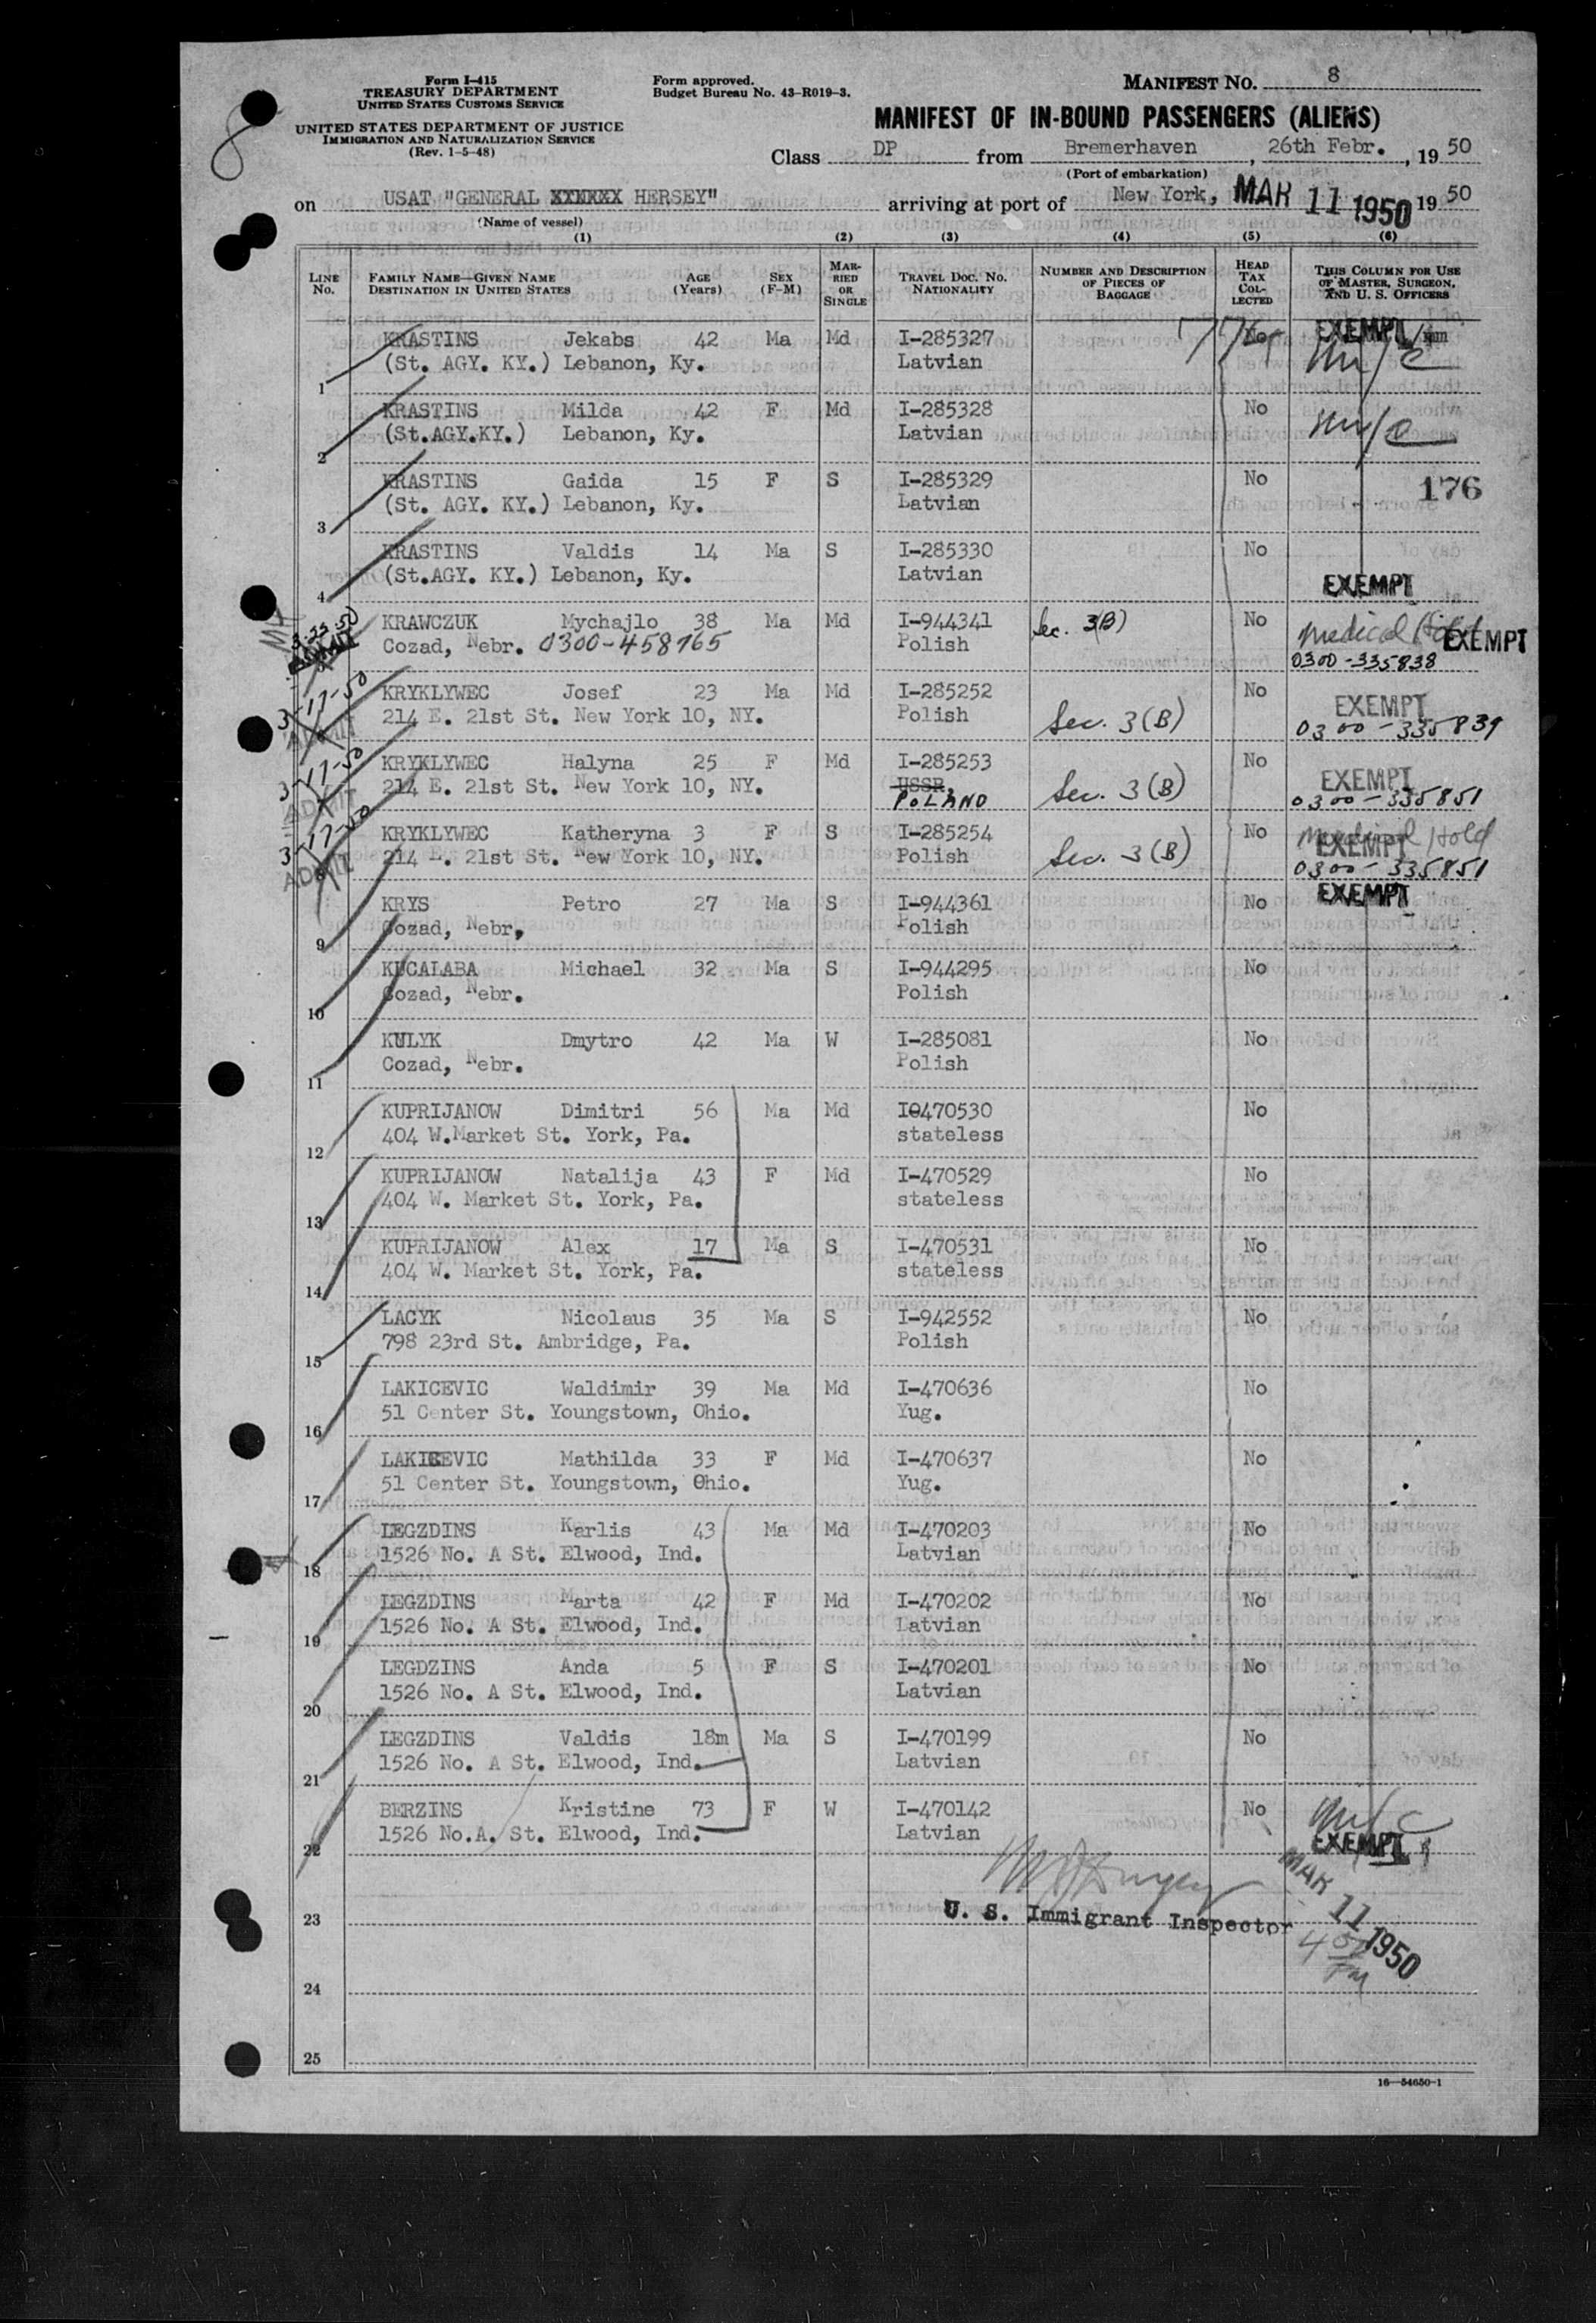 8
Form I-415
TREASURY DEPARTMENT
UNITED STATES CUSTOMS SERVICE
UNITED STATES DEPARTMENT OF JUSTICE
IMMIGRATION AND NATURALIZATION SERVICE
(Rev. 1-5-48)
Form approved.
Budget Bureau No. 43-R019-3.
MANIFEST NO. 8
MANIFEST OF IN-BOUND PASSENGERS (ALIENS)
Class DP from Bremerhaven, 26th Febr., 19 50
(Port of embarkation)
on USAT "GENERAL HERSEY" arriving at port of New York, MAR 11 1950 19 50
(Name of vessel)
(1) (2) (3) (4) (5) (6)
LINE No. FAMILY NAME—GIVEN NAME DESTINATION IN UNITED STATES AGE (Years) SEX (F-M) MARRIED OR SINGLE TRAVEL DOC. NO. NATIONALITY NUMBER AND DESCRIPTION OF PIECES OF BAGGAGE HEAD TAX COLLECTED THIS COLUMN FOR USE OF MASTER, SURGEON, AND U. S. OFFICERS
KRASTINS Jekabs 42 Ma Md I-285327 No EXEMPT
1 (St. AGY. KY.) Lebanon, Ky. Latvian
KRASTINS Milda 42 F Md I-285328 No
2 (St.AGY.KY.) Lebanon, Ky. Latvian
KRASTINS Gaida 15 F S I-285329 No 176
3 (St. AGY. KY.) Lebanon, Ky. Latvian
KRASTINS Valdis 14 Ma S I-285330 No
4 (St.AGY. KY.) Lebanon, Ky. Latvian EXEMPT
3-23-50 KRAWCZUK Mychajlo 38 Ma Md I-944341 Sec. 3(B) No Medical Hold EXEMPT
Cozad, Nebr. 0300-458765 Polish 0300-335838
3-17-50 KRYKLYWEC Josef 23 Ma Md I-285252 No EXEMPT
ADMIT 214 E. 21st St. New York 10, NY. Polish Sec. 3(B) 0300-335839
3-17-50 KRYKLYWEC Halyna 25 F Md I-285253 No EXEMPT
ADMIT 214 E. 21st St. New York 10, NY. USSR, POLAND Sec. 3(B) 0300-335851
3-17-50 KRYKLYWEC Katheryna 3 F S I-285254 No Medical Hold EXEMPT
ADMIT 214 E. 21st St. New York 10, NY. Polish Sec. 3(B) 0300-335851
KRYS Petro 27 Ma S I-944361 No EXEMPT
9 Cozad, Nebr, Polish
KUCALABA Michael 32 Ma S I-944295 No
10 Cozad, Nebr. Polish
KULYK Dmytro 42 Ma W I-285081 No
11 Cozad, Nebr. Polish
KUPRIJANOW Dimitri 56 Ma Md I0470530 No
12 404 W.Market St. York, Pa. stateless
KUPRIJANOW Natalija 43 F Md I-470529 No
13 404 W. Market St. York, Pa. stateless
KUPRIJANOW Alex 17 Ma S I-470531 No
14 404 W. Market St. York, Pa. stateless
LACYK Nicolaus 35 Ma S I-942552 No
15 798 23rd St. Ambridge, Pa. Polish
LAKICEVIC Waldimir 39 Ma Md I-470636 No
16 51 Center St. Youngstown, Ohio. Yug.
LAKICEVIC Mathilda 33 F Md I-470637 No
17 51 Center St. Youngstown, Ohio. Yug.
LEGZDINS Karlis 43 Ma Md I-470203 No
18 1526 No. A St. Elwood, Ind. Latvian
LEGZDINS Marta 42 F Md I-470202 No
19 1526 No. A St. Elwood, Ind. Latvian
LEGDZINS Anda 5 F S I-470201 No
20 1526 No. A St. Elwood, Ind. Latvian
LEGZDINS Valdis 18m Ma S I-470199 No
21 1526 No. A St. Elwood, Ind. Latvian
BERZINS Kristine 73 F W I-470142 No
22 1526 No.A. St. Elwood, Ind. Latvian EXEMPT
MAR 11 1950
23 U. S. Immigrant Inspector
24
25
16—54650-1